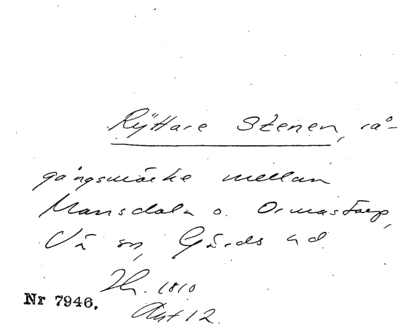 Ryttare Stenen, rå-
gångsmärke mellan
Mansdala o. Ormastorp,
Vä sn, Gärds hd
1810
Nr 7946.
Akt 12.